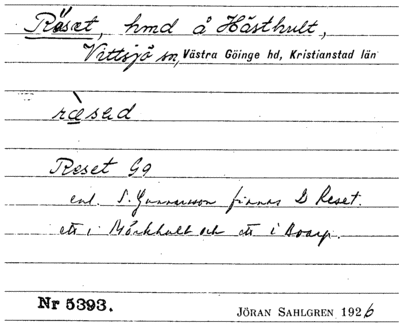 Röset, hmd å Hästhult,
Vittsjö sn, Västra Göinge hd, Kristianstad län
ræ̀sad
Reset Gg
enl. S. Gunnarsson finnas 2 Reset.
ett i Mörkhult och ett i Boarp.
Nr 5393. JÖRAN SAHLGREN 1926